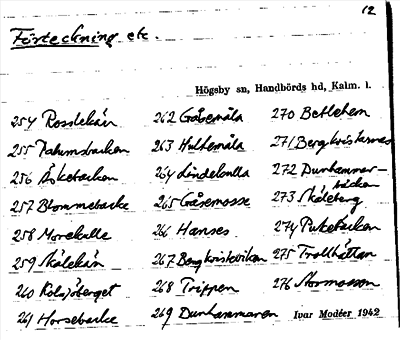 12
Förteckning etc.
Högsby sn, Handbörds hd, Kalm. l.
254 Rosslekärr 262 Gåsemåla 270 Betlehem
255 backen 263 Hultemåla 271 Bergkvistarnas
256 Äskebacken 264 Lindekulla 272 Dunhammar-
backen
257 Blommebacke 265 Gåsemosse 273 Skåleberg
258 Morekulle 266 Hanses 274 Pukebacken
259 Skålekärr 267 Bergkvistviken 275 Trollhättan
260 Kolsjöberget 268 Trippen 276 Stormossen
261 Horsebacke 269 Dunhammaren Ivar Modéer 1942